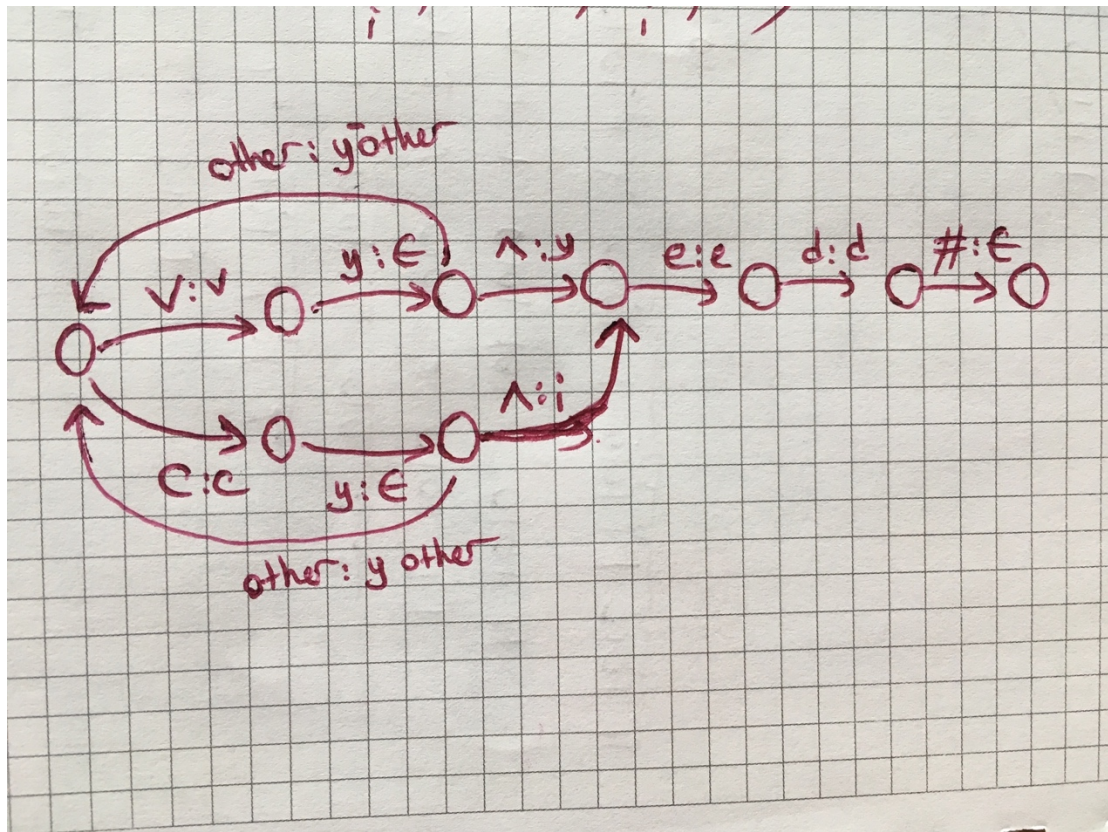 other: y other
V:V y:ε ^:y e:e d:d #:ε
^:i
C:C y:ε
other: y other